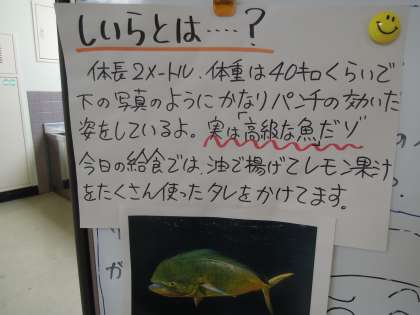 しいらとは‥‥?
体長2メートル、体重は40キロくらいで
下の写真のようにかなりパンチの効いた
姿をしているよ。実は「高級な魚」だゾ
今日の給食では、油で揚げてレモン果汁
をたくさん使ったタレをかけてます。
が